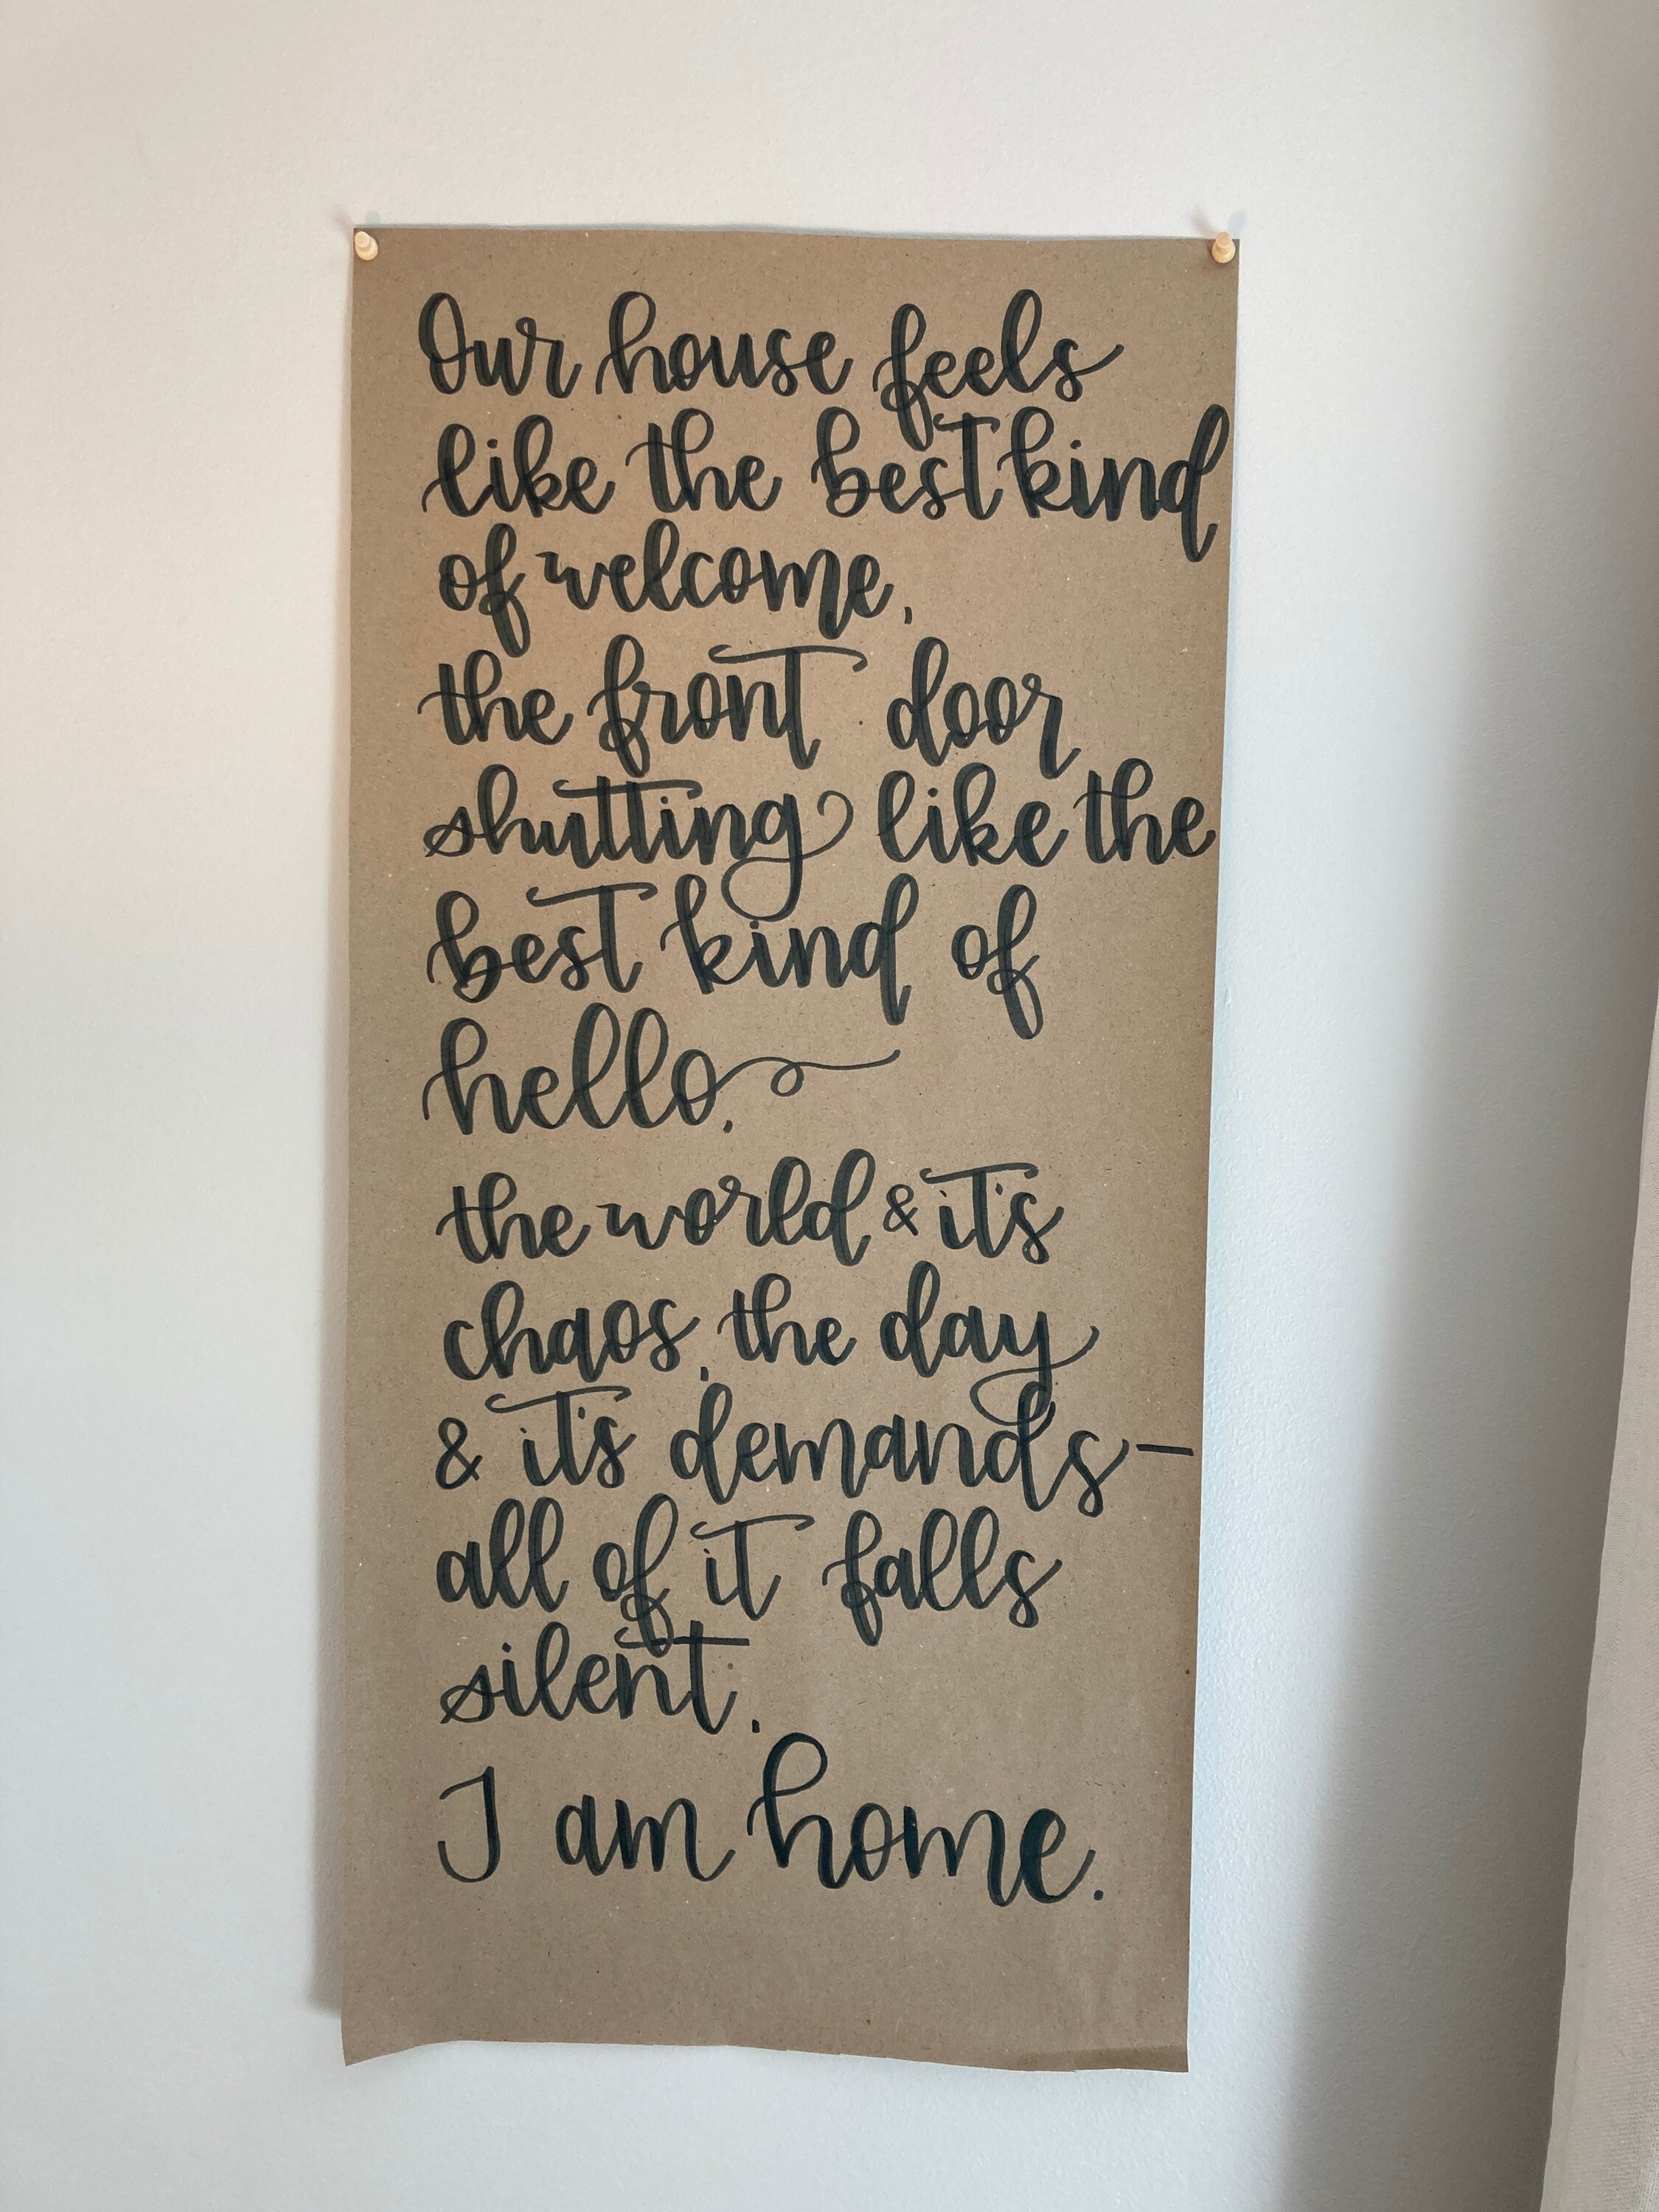 Our house feels
like the best kind
of welcome,
the front door
shutting like the
best kind of
hello.
the world & it's
chaos, the day
& it's demands—
all of it falls
silent.
I am home.